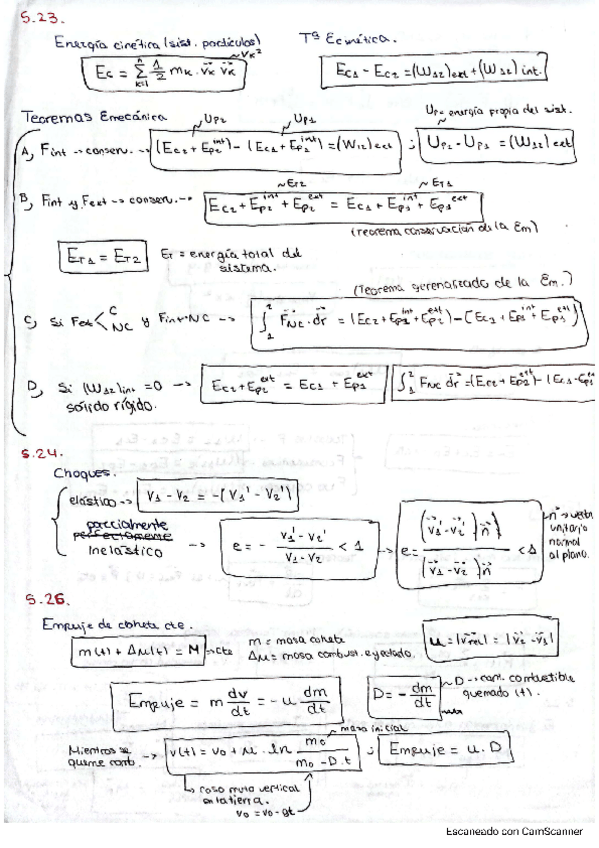 5.23.
Energía cinética (sist. partículas)
Tª Ecinética.
~ Vk²
Ec = Σ(k=1, n) 1/2 mk · vk⃗ vk⃗
Ec1 - Ec2 = (W12)ext + (W12) int.
Teoremas Emecánica
~ Up2
~ Up1
Up = energía propia del sist.
A, Fint -> conserv. -> (Ec2 + Ep2^int) - (Ec1 + Ep1^int) = (W12) ext ; Up2 - Up1 = (W12) ext
~ ET2
~ ET1
B, Fint y Fext -> conserv. -> Ec2 + Ep2^int + Ep2^ext = Ec1 + Ep1^int + Ep1^ext
(teorema conservación de la Em)
ET1 = ET2
ET = energía total del
sistema.
(Teorema generalizado de la Em.)
C, Si Fext < C NC y Fint NC -> ∫₁² F⃗NC · dr⃗ = (Ec2 + Ep2^int + Ep2^ext) - (Ec1 + Ep1^int + Ep1^ext)
D, Si (W12)int = 0 -> Ec2 + Ep2^ext = Ec1 + Ep1^ext
∫₁² FNC dr⃗ = (Ec2 + Ep2^ext) - (Ec1 - Ep1^ext
sólido rígido.
5.24.
Choques.
elástico -> V1 - V2 = -(V1' - V2')
parcialmente
perfectamente
Inelástico -> e = - (V1' - V2')/(V1 - V2) < 1 -> e = (v1⃗' - v2⃗')n⃗/(v1⃗ - v2⃗)n⃗ < 1
n⃗ -> vector
unitario
normal
al plano.
5.26.
Empuje de cohete cte.
m(t) + Δμ(t) = M -> cte
m = masa cohete
Δμ = masa combust. eyectado.
u = |v⃗rel| = |v⃗2 - v⃗1|
Empuje = m dv/dt = -u dm/dt
D = - dm/dt
~ D -> cant. combustible
quemado (t).
masa inicial
Mientras se
queme comb. -> v(t) = v0 + u · ln m0/(m0 - D·t) ; Empuje = u · D
-> caso ruta vertical
en la tierra.
v0 = v0 - gt
Escaneado con CamScanner